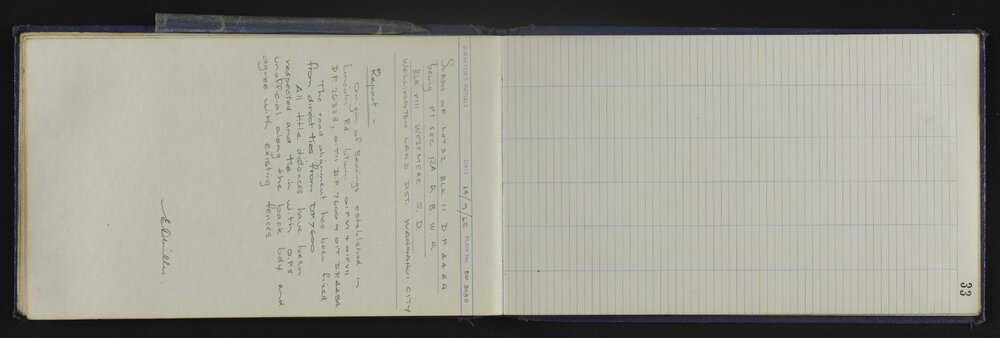 SURVEYOR'S INITIALS DATE 24/9/68 PLAN No. DP.
Subdn of LOT 32 BLK II D.P. 4484
being PT SEC 12A R. B. W. R.
BLK VIII WESTMERE S.D.
WELLINGTON LAND DIST. WANGANUI CITY
Report -
Origin of Bearings established in
Lincoln Rd btwn OIP VI & OIP VII
D.P. 26328, OIT II D.P. 7600 & OIT D.P. 4484
The road alignment has been fixed
from direct ties from D.P. 7600
All title distances have been
respected and tie in with O.P's
unofficial along the back bdy and
agree with existing fences
33